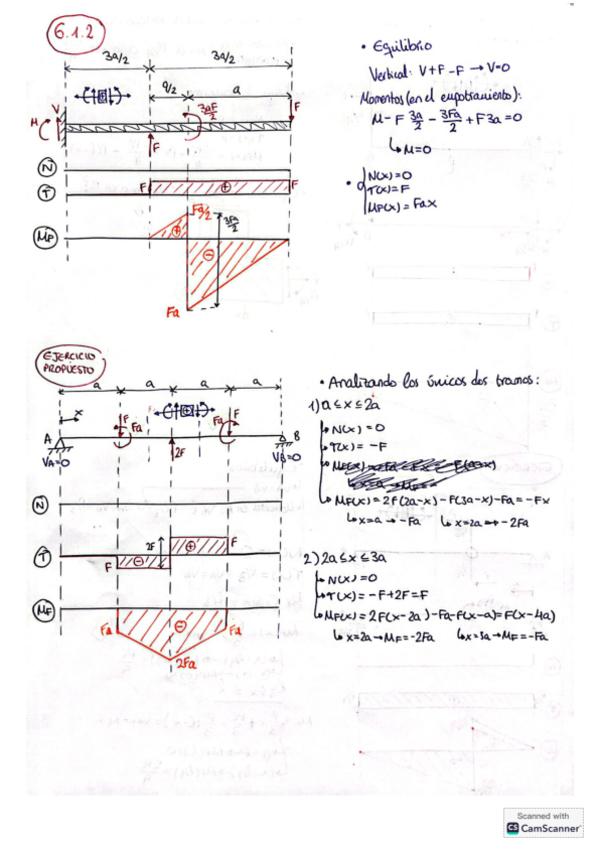 6.1.2
3a/2
3a/2
a/2
a
M
V
3aF
2
F
F
N
T
F
+
F
MF
Fa/2
+
3Fa
2
-
Fa
• Equilibrio
Vertical: V+F-F → V=0
Momentos (en el empotramiento):
M - F 3a/2 - 3Fa/2 + F3a = 0
↳ M=0
• N(x)=0
T(x)=F
MF(x)=Fax
EJERCICIO
PROPUESTO
a
a
a
a
x
F
Fa
Fa
F
A
B
VA=0
2F
VB=0
N
T
F
-
2F
+
F
MF
Fa
-
Fa
2Fa
• Analizando los únicos dos tramos:
1) a ≤ x ≤ 2a
N(x) = 0
T(x) = -F
MF(x) = 2F(2a-x) - F(3a-x) - Fa = -Fx
↳ x=a → -Fa ↳ x=2a → -2Fa
2) 2a ≤ x ≤ 3a
N(x) = 0
T(x) = -F+2F = F
MF(x) = 2F(x-2a) - Fa - F(x-a) = F(x-4a)
↳ x=2a → MF=-2Fa ↳ x=3a → MF=-Fa
Scanned with
CS CamScanner